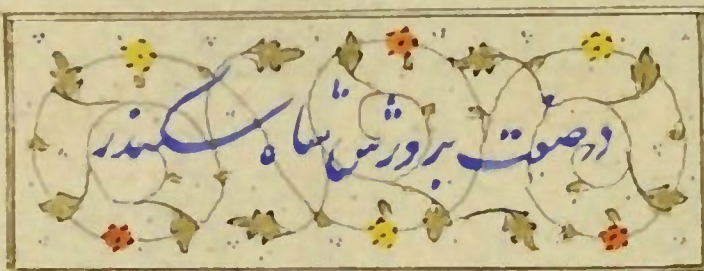 در صفت پرورش شاه سکندر